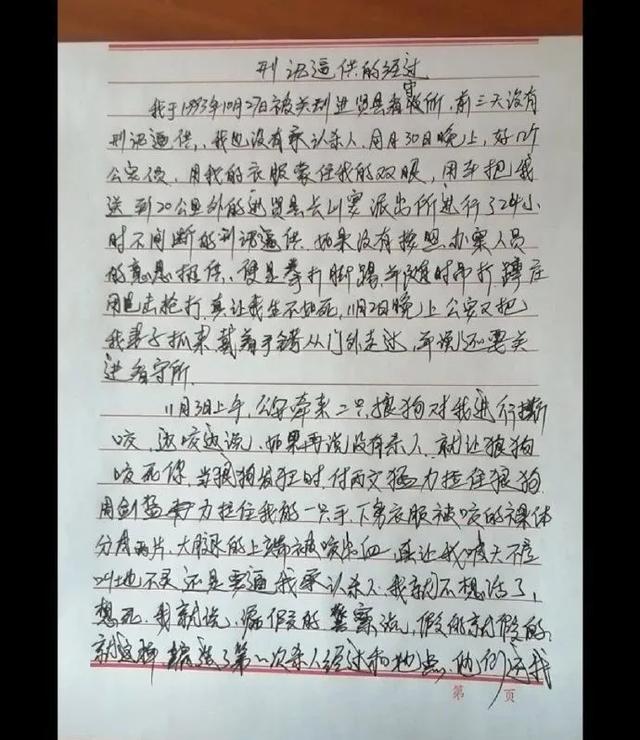 刑讯逼供的经过
我于1993年10月27日被关到进贤县看守所，前三天没有
刑讯逼供，我也没有承认杀人，同月30日晚上，好几个
公安员，用我的衣服蒙住我的双眼，用车把我
送到20公里外的进贤县长山寨派出所进行了24小
时不间断的刑讯逼供。如果没有按照办案人员
的意思招供、便是拳打脚踢，并随时吊打蹲庄
用电击枪打，真让我生不如死，11月2日晚上公安又把
我妻子抓来，戴着手铐从门外走过，并说还要关
进看守所。
11月3日上午，公安牵来二只狼狗对我进行撕
咬，边咬边说，如果再说没有杀人，就让狼狗
咬死你，当狼狗发狂时，付两文猛力拉住狼狗，
周剑猛力拉住我的一只手，下身衣服被咬的裸体
分成两片，大股的上端被咬出血，真让我喊天不应
叫地不灵还是要逼我承认杀人，我就不想活了，
想死，我就说，编假的，警察说，假的就假的，
就这样，编造了第一次杀人经过和地点，他们送我
第 页